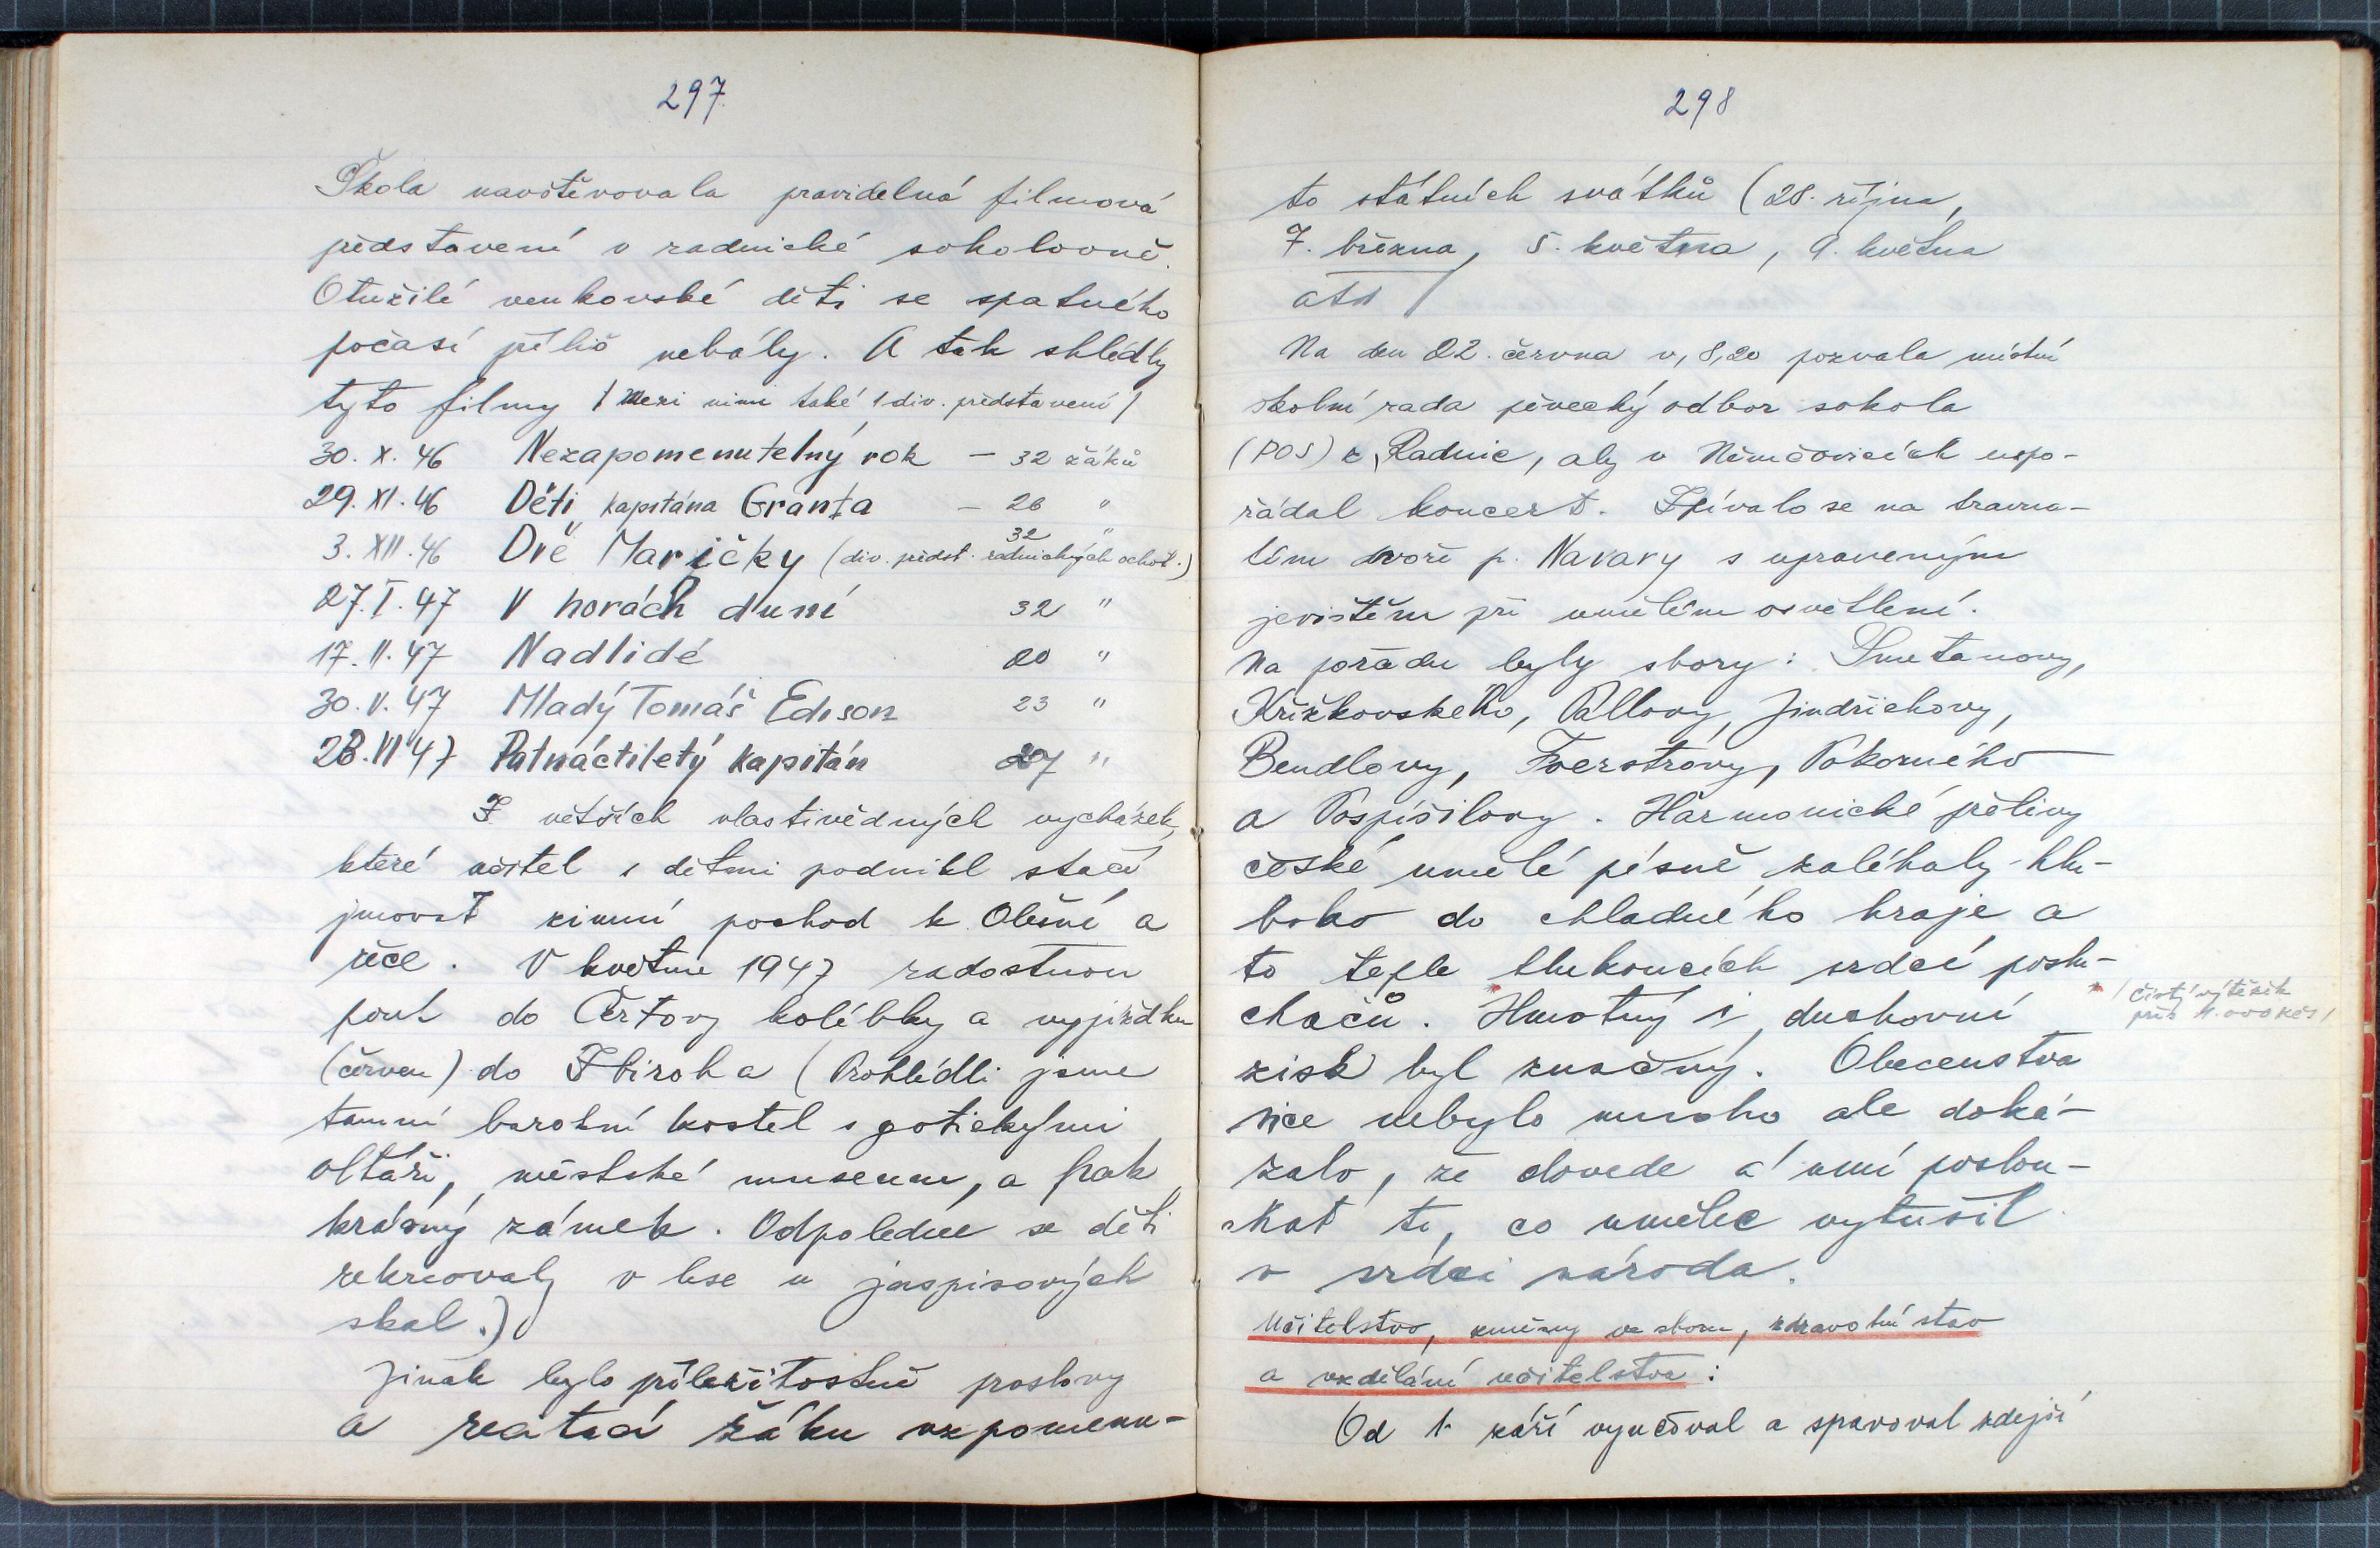 297
Škola navštěvovala pravidelná filmová
představení v radnické sokolovně.
Otužilé venkovské děti se špatného
počasí příliš nebály. A tak shlédly
tyto filmy / mezi nimi také 1 div. představení /
30. X. 46 Nezapomenutelný rok – 32 žáků
29. XI. 46 Děti kapitána Granta – 26 "
3. XII. 46 Dvě Maričky (div. předst. radnických ochot.) 32 "
27. I. 47 V horách duní 32 "
17. II. 47 Nadlidé 20 "
30. V. 47 Mladý Tomáš Edison 23 "
28. VI 47 Patnáctiletý kapitán 27 "
Z větších vlastivědných vycházek,
které učitel s dětmi podnikl stačí
jmovat zimní pochod k Olešné a
řéce. V květnu 1947 radostnou
pouť do Čertovy kolébky a vyjížďku
(červen) do Zbiroha (Prohlédli jsme
tamní barokní kostel s gotickými
oltáři, městské museum, a pak
krásný zámek. Odpoledne se děti
rekreovaly v lese u jaspisových
skal.)
Jinak bylo příležitostně proslovy
a recitací žáků vzpomenu-
298
to státních svátků (28. října,
7. března, 5. května, 9. května
atd /
Na den 22. června v 8,20 pozvala místní
školní rada pěvecký odbor sokola
(POS) z Radnic, aby v Němčovicích uspo-
řádal koncert. Zpívalo se na travna-
tém dvoře p. Navary s upraveným
jevištěm při umělém osvětlení.
Na pořadu byly sbory: Smetanovy,
Křížkovského, Pallovy, Jindřichovy,
Bendlovy, Foerstrovy, Pokorného
a Pospíšilovy. Harmonické přelivy
české umělé písně zaléhaly hlu-
boko do chladného kraje a
to teple tlukoucích srdcí poslu-
chačů. Hmotný i duchovní
/ čistý výtěžek
přes 4.000 Kčs /
zisk byl značný. Obecenstva
sice nebylo mnoho ale doká-
zalo, že dovede a umí poslou-
chat to, co umělec vytušil
v srdci národa.
Učitelstvo, změny ve sboru, zdravotní stav
a vzdělání učitelstva:
Od 1. září vyučoval a spravoval zdejší